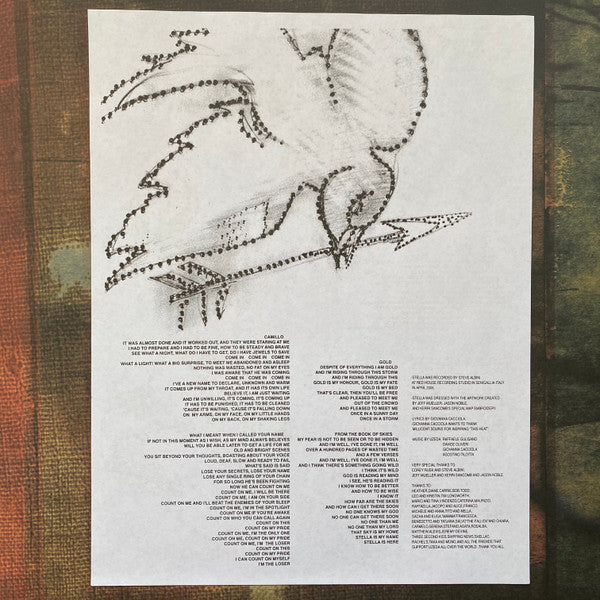 CAMILLO
IT WAS ALMOST DONE AND IT WORKED OUT, AND THEY WERE STARING AT ME
I HAD TO PREPARE AND I HAD TO BE FINE, HOW TO BE STEADY AND BRAVE
SEE WHAT A NIGHT, WHAT DO I HAVE TO GET, DO I HAVE JEWELS TO SAVE
COME IN COME IN COME IN
WHAT A LIGHT! WHAT A BIG SURPRISE, TO MEET WE ABANDONED AND ASLEEP
NOTHING WAS WASTED, NO FAT ON MY EYES
I WAS AWARE THAT HE WAS COMING
COME IN COME IN COME IN
I'VE A NEW NAME TO DECLARE, UNKNOWN AND WARM
IT COMES UP FROM MY THROAT, AND IT HAS IT'S OWN LIFE
BELIEVE IT, I AM JUST WAITING
AND I'M UNWILLING, IT'S COMING, IT'S COMING UP
IT HAS TO BE PUNISHED, IT HAS TO BE CLEANED
'CAUSE IT'S WAITING, 'CAUSE IT'S FALLING DOWN
ON MY ARMS, ON MY FACE, ON MY LITTLE HANDS
ON MY BACK, ON MY SHAKING LEGS
WHAT I MEANT WHEN I CALLED YOUR NAME
IF NOT IN THIS MOMENT AS I WISH, AS MY MIND ALWAYS BELIEVES
WILL YOU BE ABLE LATER TO GET A LIFE FOR ME
OLD AND BRIGHT SCENES
YOU SIT BEYOND YOUR THOUGHTS, BOASTING ABOUT YOUR VOICE
LOUD, DEAF, SLOW AND READY TO FAIL
WHAT'S SAID IS SAID
LOSE YOUR SECRETS, LOSE YOUR NAME
LOSE ANY SINGLE RING OF YOUR CHAIN
FOR SO LONG HE'S BEEN FIGHTING
NOW HE CAN COUNT ON ME
COUNT ON ME, I WILL BE THERE
COUNT ON ME, I AM ON YOUR SIDE
COUNT ON ME AND I'LL BEAT THE ENEMIES OF YOUR SLEEP
COUNT ON ME, I'M IN THE SPOTLIGHT
COUNT ON ME IF YOU'RE AWAKE
COUNT ON WHO YOU CAN CALL AGAIN
COUNT ON THIS
COUNT ON MY PRIDE
COUNT ON ME, I'M THE ONLY ONE
COUNT ON ME, COUNT ON MY PRIDE
COUNT ON ME, I'M THE LOSER
COUNT ON THIS
COUNT ON MY PRIDE
I CAN COUNT ON MYSELF
I'M THE LOSER
GOLD
DESPITE OF EVERYTHING I AM GOLD
AND I'M RIDING THROUGH THIS STORM
AND I'M RIDING THROUGH THIS
GOLD IS MY HONOUR, GOLD IS MY FATE
GOLD IS MY BED
THAT'S CLEAR, THEN YOU'LL BE FREE
AND PLEASED TO MEET ME
OUT OF THE CROWD
AND PLEASED TO MEET ME
ONCE IN A SUNNY DAY
ONCE IN A STORM
FROM THE BOOK OF SKIES
MY FEAR IS NOT TO BE SEEN OR TO BE HIDDEN
AND I'M WELL, I'VE DONE IT, I'M WELL
OVER A HUNDRED PAGES OF WASTED TIME
AND A FEW VERSES
AND I'M WELL, I'VE DONE IT, I'M WELL
AND I THINK THERE'S SOMETHING GOING WILD
I THINK IT'S WILD
GOD IS READING MY MIND
I SEE, HE'S READING IT
I KNOW HOW TO BE BETTER
AND HOW TO BE WISE
I KNOW IT
HOW FAR ARE THE SKIES
AND HOW CAN I GET THERE SOON
NO ONE KNOWS MY GOD
NO ONE CAN GET THERE SOON
NO ONE THAN ME
NO ONE THAN MY LORD
THAT SKY IS MY HOME
STELLA IS MY NAME
STELLA IS HERE
STELLA WAS RECORDED BY STEVE ALBINI
AT RED HOUSE RECORDING STUDIO IN SENIGALLIA ITALY
STELLA WAS DRESSED WITH THE ARTWORK CREATED
BY JEFF MUELLER, JASON NOBLE,
LYRICS BY GIOVANNA CACCIOLA
GIOVANNA CACCIOLA WANTS TO THANK
MUSIC BY UZEDA: RAFFAELE GULISANO
DAVIDE OLIVERI
GIOVANNA CACCIOLA
AGOSTINO TILOTTA
VERY SPECIAL THANKS TO:
COREY RUSK AND STEVE ALBINI,
THANKS TO: